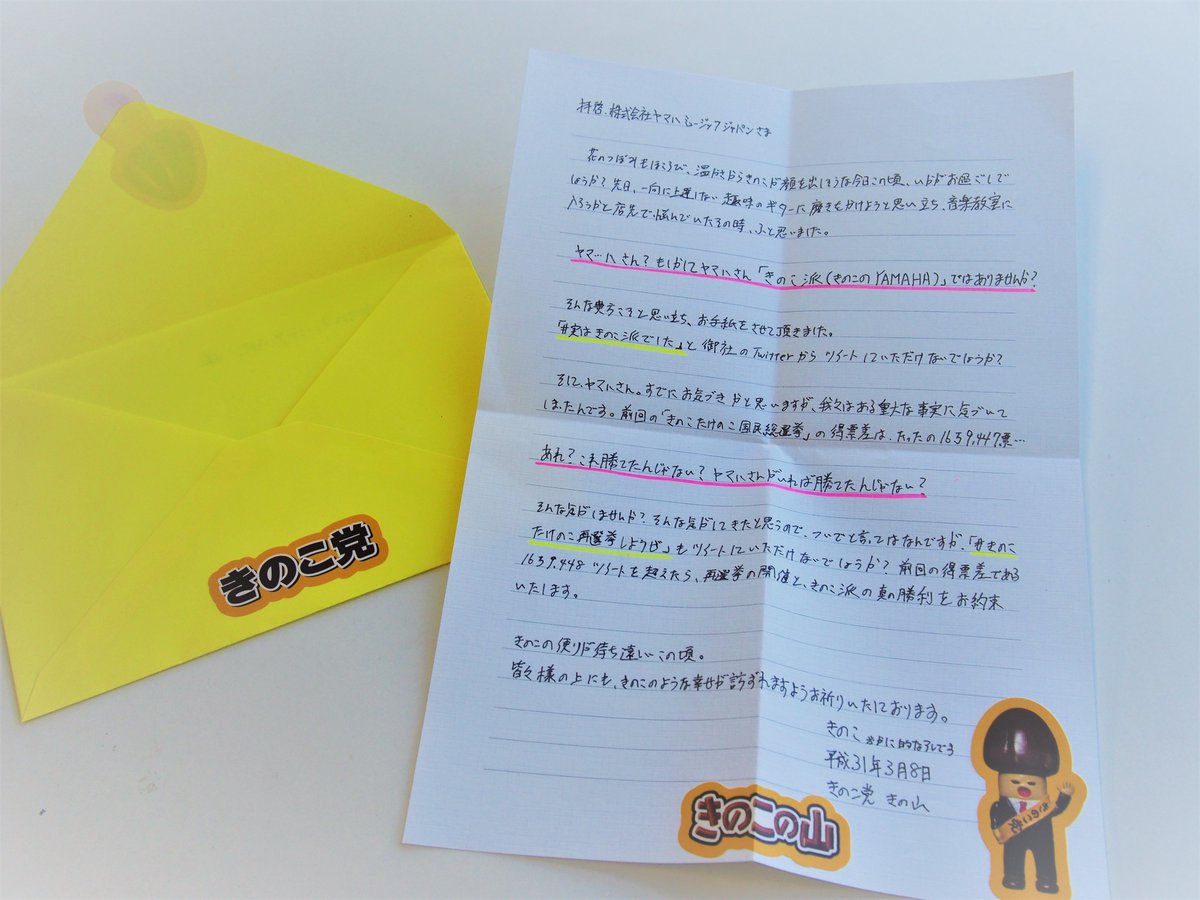 拝啓、株式会社ヤマハミュージックジャパンさま
花のつぼみもほころび、温かさからきのこが顔を出しそうな今日この頃、いかがお過ごしで
しょうか?先日、一向に上達しない趣味のギターに磨きをかけようと思い立ち、音楽教室に
入ろうかと店先で悩んでいたその時、ふと思いました。
ヤマハさん?もしかしてヤマハさん「きのこ派(きのこのYAMAHA)」ではありませんか?
そんな ことを思い立ち、お手紙をさせて頂きました。
「#実はきのこ派でした」と御社のTwitterからツイートしていただけないでしょうか?
そして、ヤマハさん。すでにお気づきかと思いますが、我々はある重大な事実に気づいて
しまったんです。前回の「きのこたけのこ国民総選挙」の得票差は、たったの1639,447票…
あれ?これ勝てたんじゃない?ヤマハさんがいれば勝てたんじゃない?
そんな気がしませんか?そんな気がしてきたと思うので、ついでと言ってはなんですが、「#きのこ
たけのこ再選挙しようぜ」もツイートしていただけないでしょうか?前回の得票差である
1639,448ツイートを超えたら、再選挙の開催と、きのこ派の真の勝利をお約束
いたします。
きのこの便りが待ち遠しいこの頃。
皆々様の上にも、きのこのような幸せが訪ずれますようお祈りいたしております。
きのこ
平成31年3月8日
きのこ党 きの山
きのこ党
きのこの山